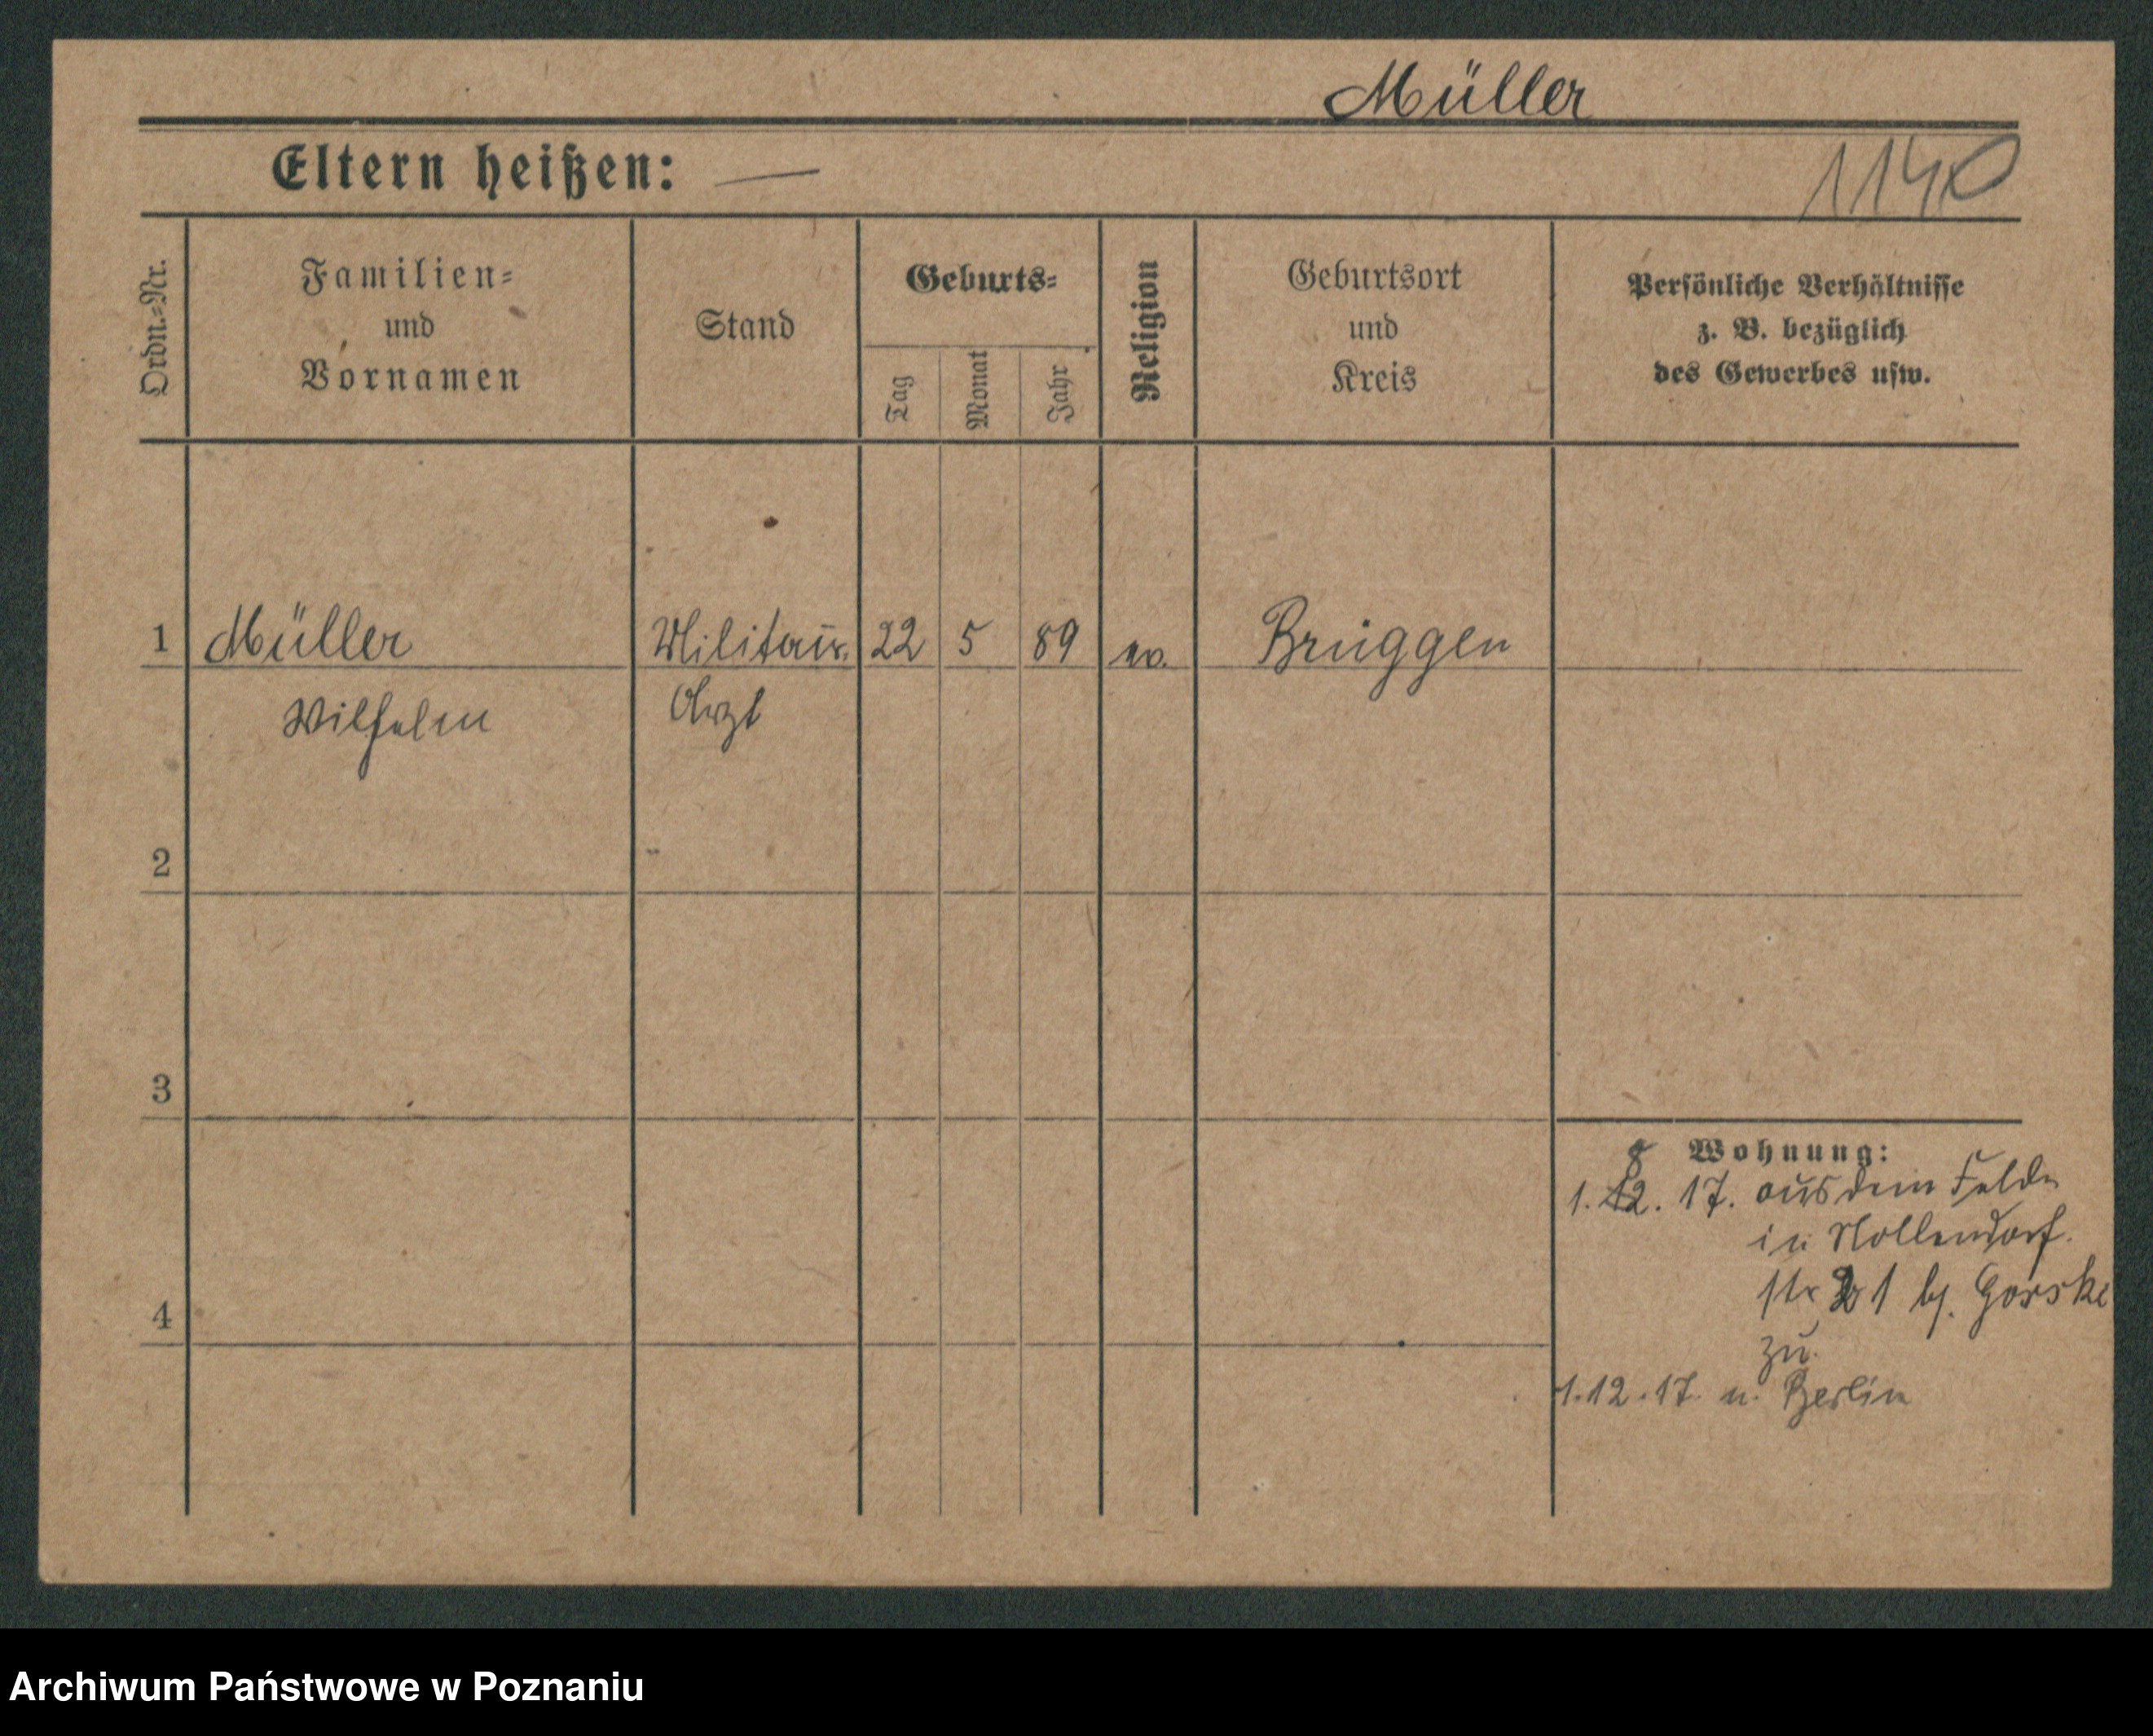 Müller
Eltern heißen: —
1140
Ordn.-Nr.
Familien-
und
Vornamen
Stand
Geburts-
Tag
Monat
Jahr
Religion
Geburtsort
und
Kreis
Persönliche Verhältnisse
z. B. bezüglich
des Gewerbes usw.
1 Müller Militair. 22 5 89 ev. Brüggen
Wilhelm Arzt
2
3
4
Wohnung:
8
1. 12. 17. aus dem Felde
in Nollendorf.
str 21 bj. Gorske
zu.
1.12.17. n. Berlin
Archiwum Państwowe w Poznaniu